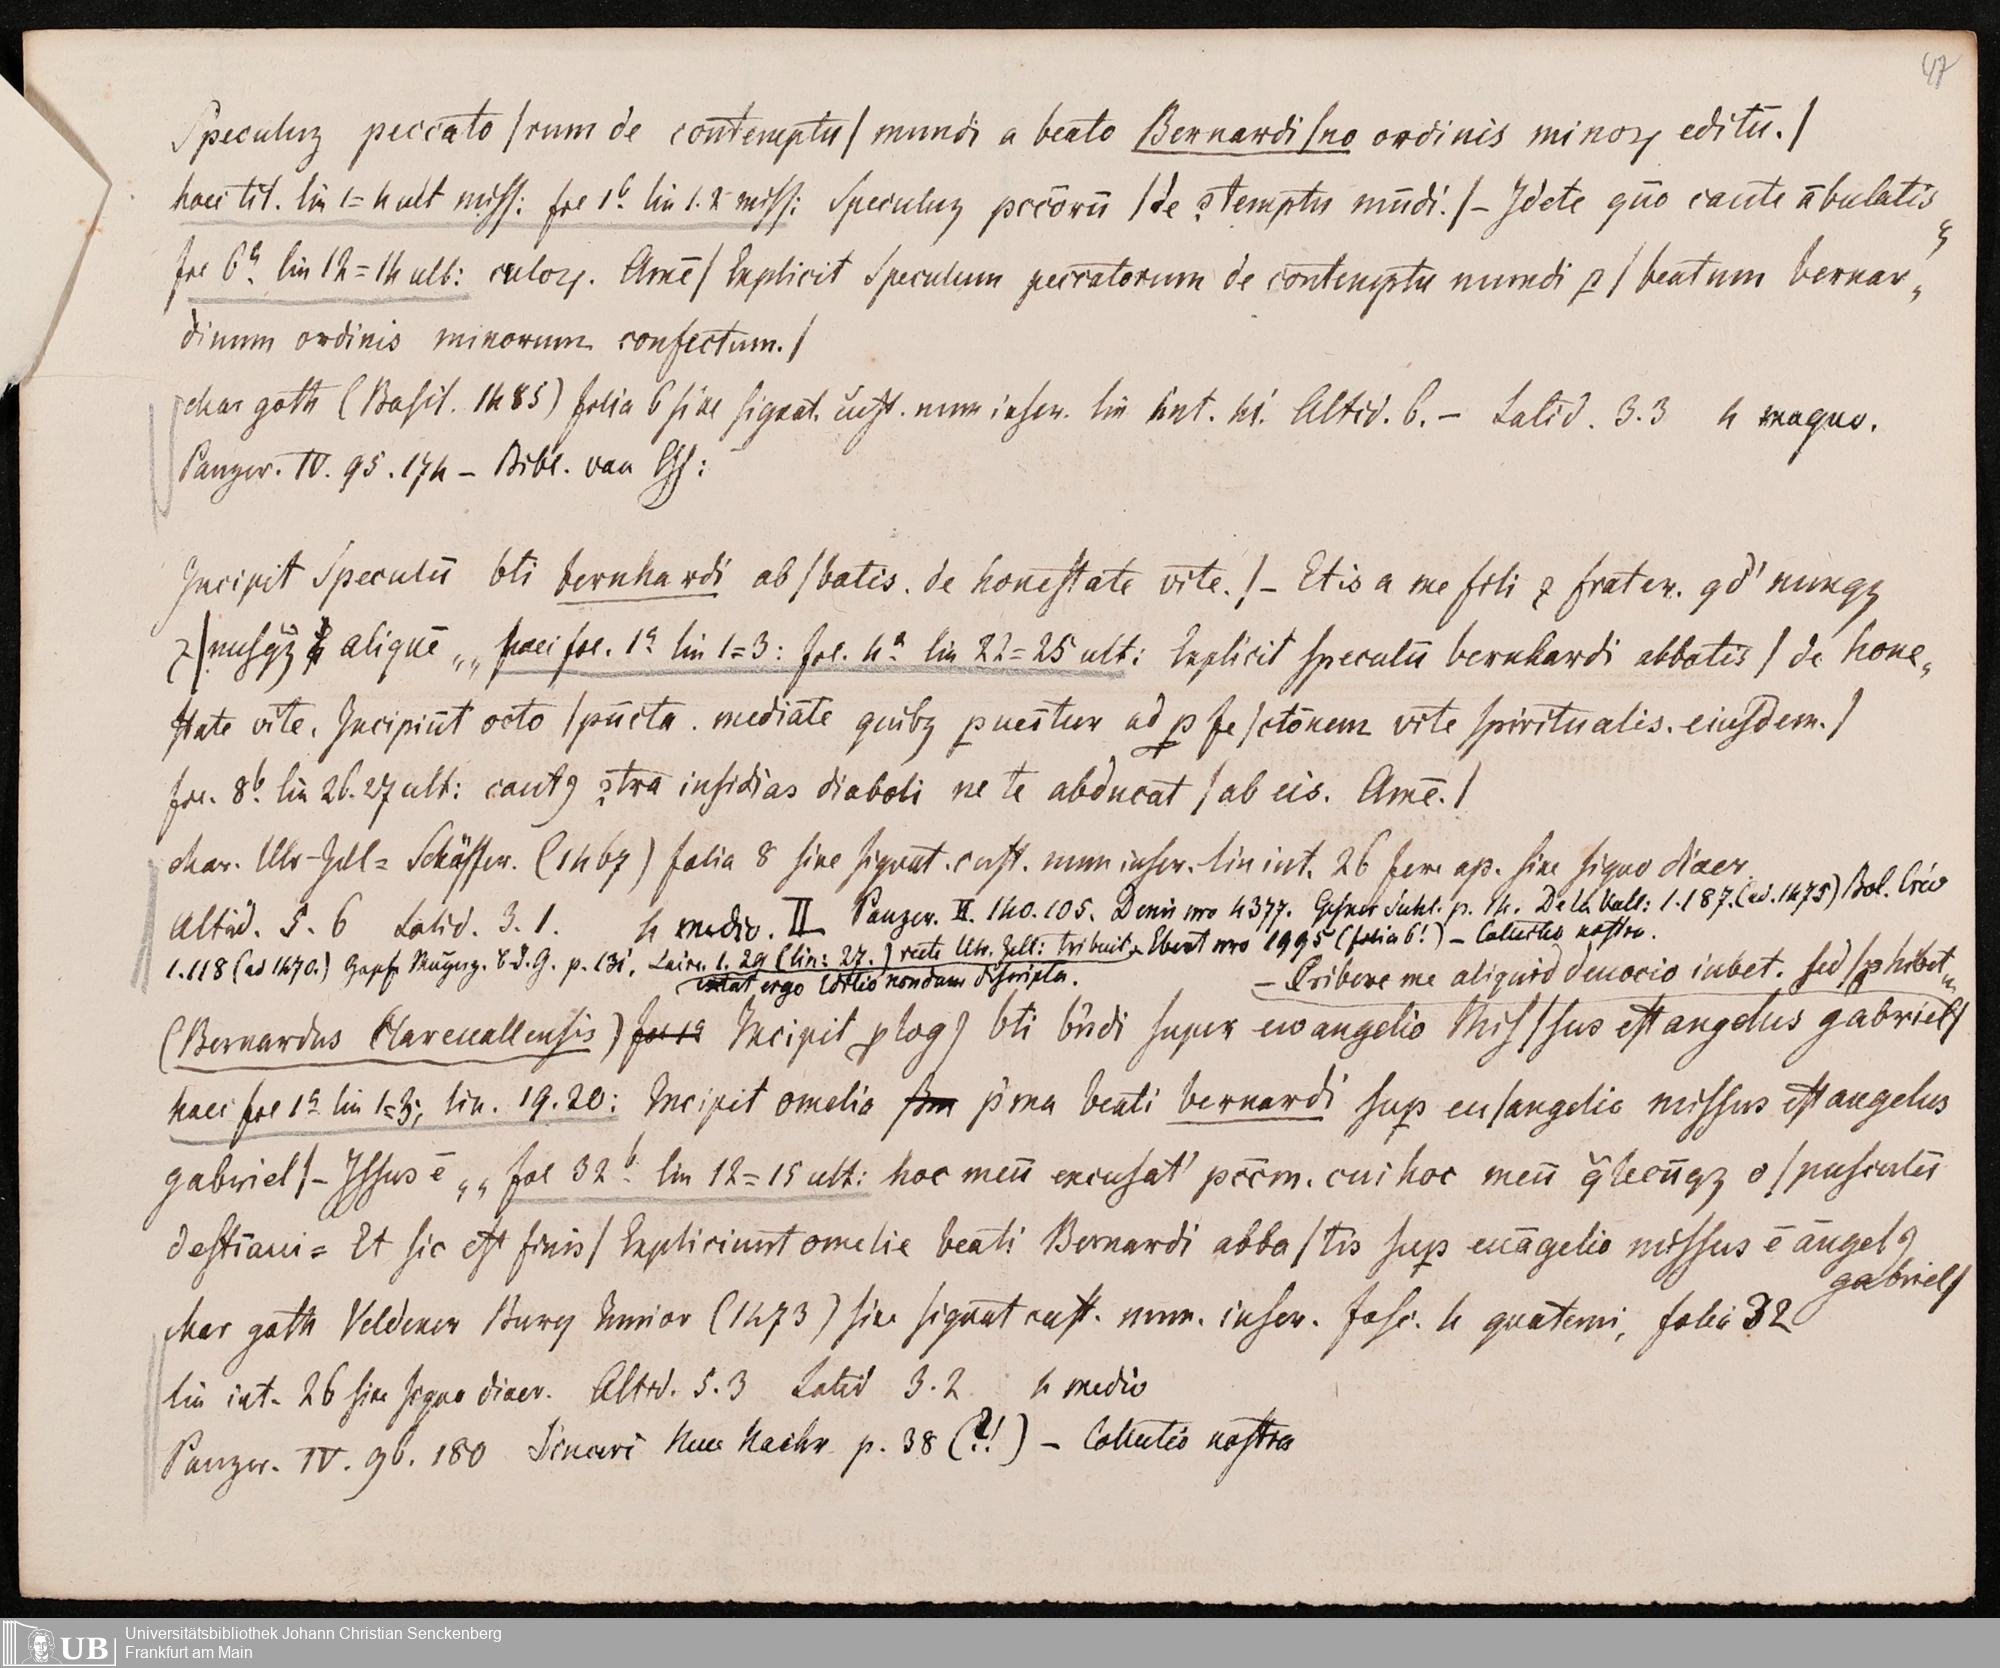 47
Speculuz peccato/rum de contemptu/ mundi a beato Bernardi/no ordinis minoꝝ editū./
haec tit. lin 1=4 ult miss: fol 1b. lin 1.2 miss: Speculuz pccōrū /de ꝯtemptu mūdi./ – Jdete quō caute ābulatis
fol 6a. lin 12=14 ult: culoꝝ. Amē/ Explicit Speculum peccatorum de contemptu mundi p / beatum bernar„
dinum ordinis minorum confectum./
char goth (Basil. 1485) folia 6 sine signat. cust. num inser. lin int. 41. Altid. 6. – Latid. 3.3 4 magno.
Panzer. IV. 95. 174 – Bibl. van Ess:
Incipit Speculū bti bernhardi ab/batis. de honestate vite./ – Etis a me fili ⁊ frater. qd' nunqꝫ
⁊/nusqꝫ aliquē „„ haec fol. 1a lin 1=3: fol. 4a lin 22=25 ult: Explicit speculū bernhardi abbatis / de hone„
state vite. Incipiūt octo /pūcta. mediāte quibꝫ puenitur ad ꝑfe/ctōnem vite spiritualis. eiusdem./
fol. 8b. lin 26.27 ult: cautꝰ ꝯtra insidias diaboli ne te abducat /ab eis. Amē./
char. Ulr-Zell= Schöffer. (1467) folia 8 sine signat. cust. num inser. lin int. 26 fere ap. sine signo diaer.
Altid. 5. 6 Latid. 3. 1. 4 medio. II Panzer. II. 140. 105. Denis nro 4377. p. 14. De la Vall: 1.187. (ad. 1475) Bol. Crev
1.118 (ad 1470.) Zapf p. 131. Laire. 1. 29 (lin: 27.) recte Ulr. Zell: tribuit. Ebert nro 1995 (folia 6!) – Collectio nostra.
extat ergo editio nondum descripta.
– Cribere me aliquid deuocio iubet. sed /phibet„
(Bernardus Clareuallensis) Incipit plogꝰ bti bn̄di super ewangelio Mis/sus est angelus gabriel/
haec fol 1a lin 1=3; lin. 19. 20: Incipit omelia p'ma beati bernardi suꝑ eu/angelio missus est angelus
gabriel/ – Issus ē „„ fol 32b. lin 12=15 ult: hoc meū excusat' pccm. cui hoc meū o/pusculū
destīaui= Et sic est finis/ Expliciunt omelie beati Bernardi abba/tis suꝑ euāgelio missus ē āngelꝰ
gabriel/
char goth Veldener Iunior (1473) sine signat cust. num. inser. fasc. 4 quaterni, folia 32
lin int. 26 sine signo diaer. Altid. 5. 3 Latid 3. 2 4 medio
Panzer. IV. 96. 180 Nachr p. 38 (?!) – Collectio nostra
UB
Universitätsbibliothek Johann Christian Senckenberg
Frankfurt am Main